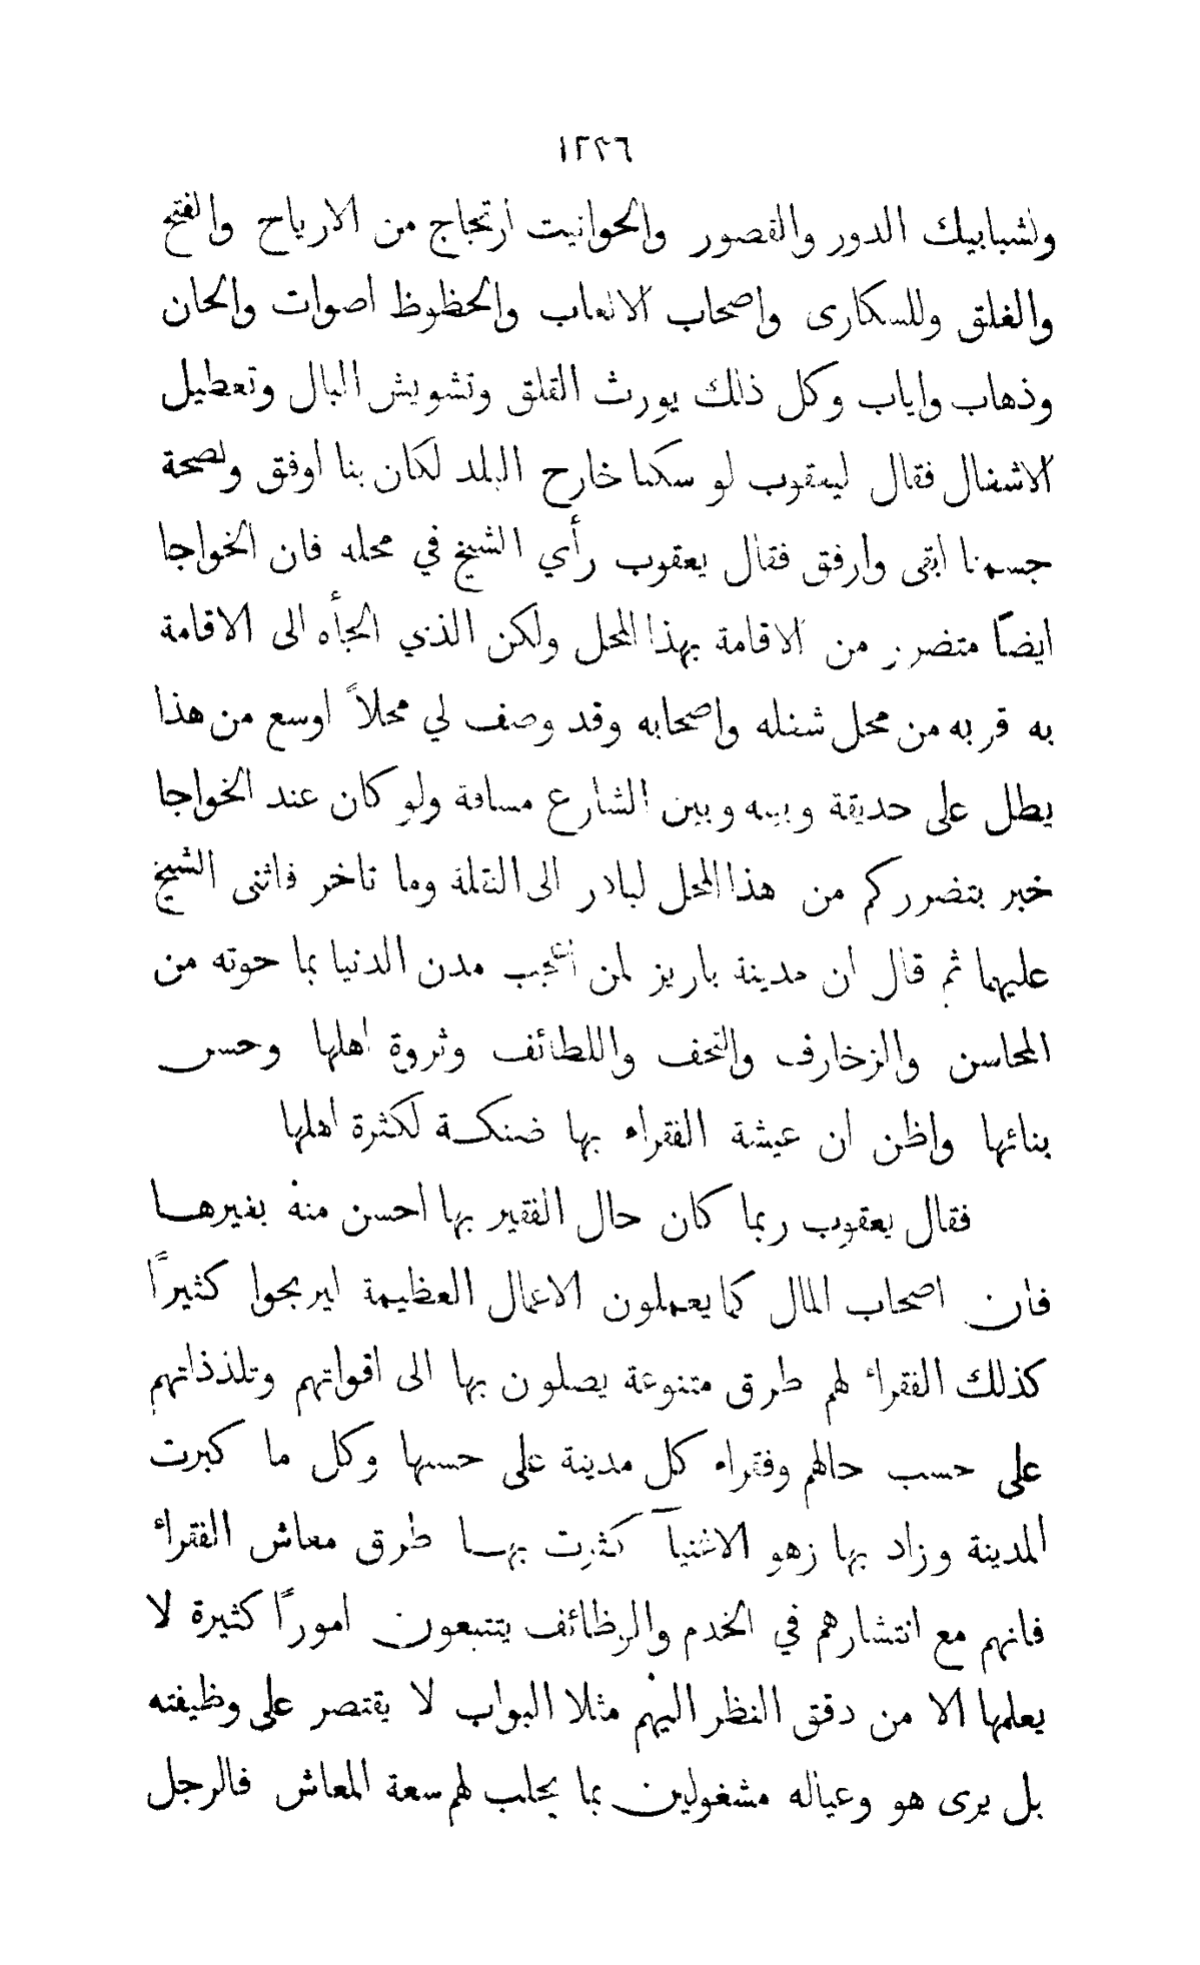 ١٢٢٦
ولشبابيك الدور والقصور والحوانيت ارتجاج من الارياح والفتح
والغلق وللسكارى واصحاب الالعاب والحظوظ اصوات والحان
وذهاب واياب وكل ذلك يورث القلق وتشويش البال وتعطيل
الاشغال فقال ليعقوب لو سكنا خارج البلد لكان بنا اوفق ولصحة
جسمنا ابقى وارفق فقال يعقوب رأي الشيخ في محله فان الخواجا
ايضاً متضرر من الاقامة بهذا المحل ولكن الذي الجأه الى الاقامة
به قربه من محل شغله واصحابه وقد وصف لي محلاً اوسع من هذا
يطل على حديقة وبينه وبين الشارع مسافة ولو كان عند الخواجا
خبر بتضرركم من هذا المحل لبادر الى النقلة وما تاخر فاثنى الشيخ
عليهما ثم قال ان مدينة باريز لمن اعجب مدن الدنيا بما حوته من
المحاسن والزخارف والتحف واللطائف وثروة اهلها وحسن
بنائها واظن ان عيشة الفقراء بها ضنكة لكثرة اهلها
فقال يعقوب ربما كان حال الفقير بها احسن منه بغيرها
فان اصحاب المال كما يعملون الاعمال العظيمة ليربحوا كثيرًا
كذلك الفقراء لهم طرق متنوعة يصلون بها الى اقواتهم وتلذذاتهم
على حسب حالهم وفقراء كل مدينة على حسبها وكل ما كبرت
المدينة وزاد بها زهو الاغنيآ كثرت بها طرق معاش الفقراء
فانهم مع انتشارهم في الخدم والوظائف يتتبعون امورًا كثيرة لا
يعلمها الا من دقق النظر اليهم مثلا البواب لا يقتصر على وظيفته
بل يرى هو وعياله مشغولين بما يجلب لهم سعة المعاش فالرجل